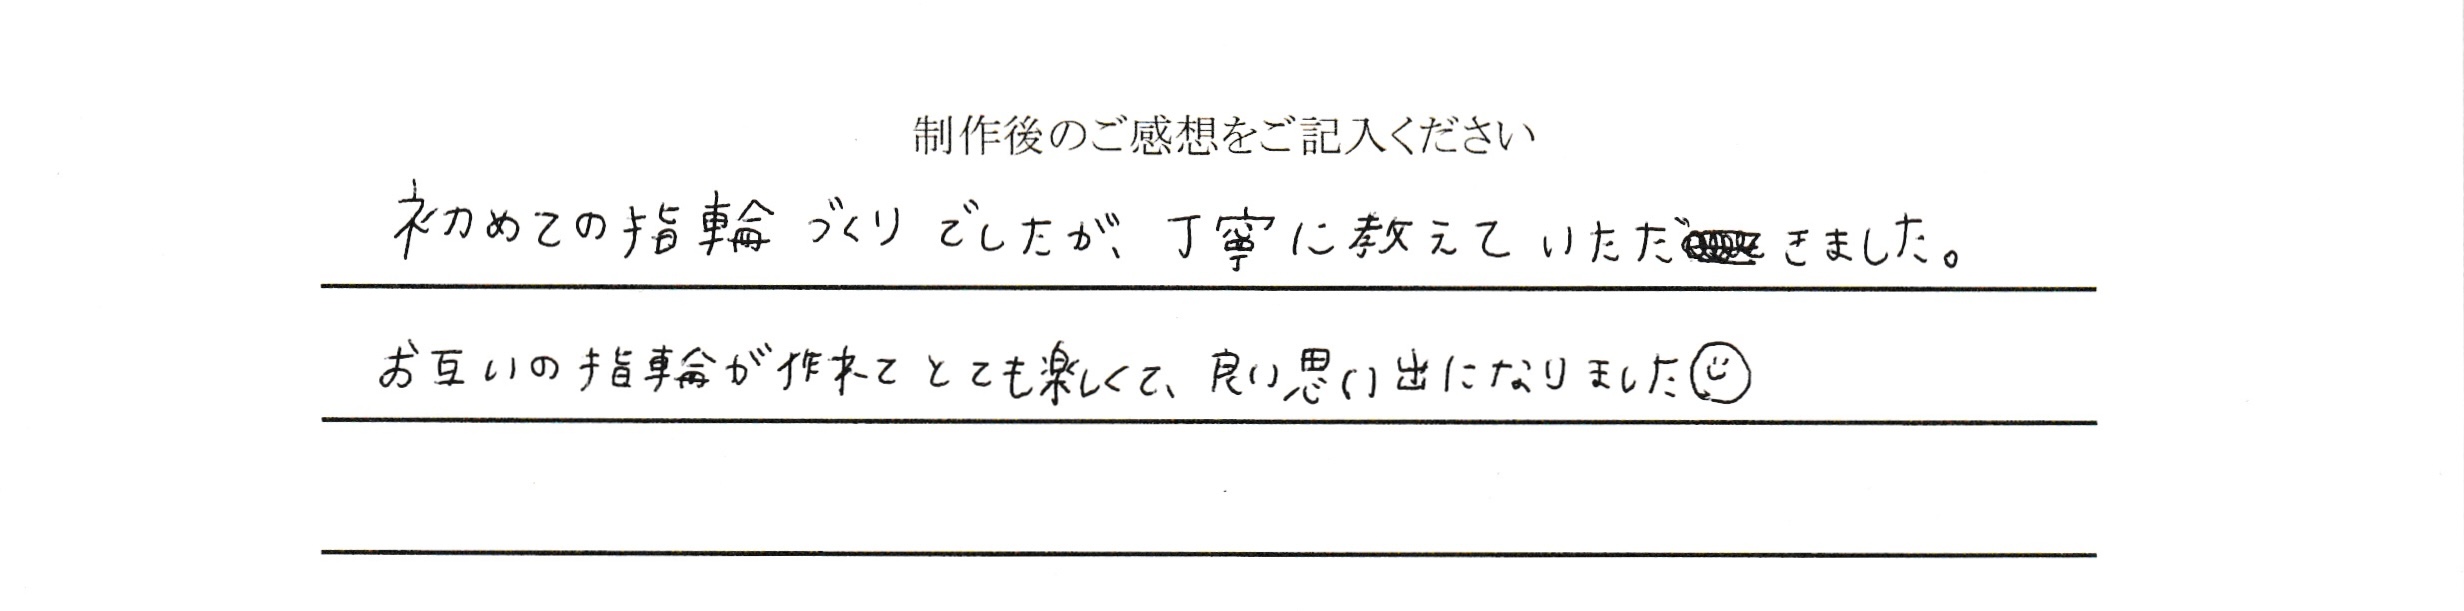 制作後のご感想をご記入ください
初めての指輪づくりでしたが、丁寧に教えていただきました。
お互いの指輪が作れてとても楽しくて、良い思い出になりました☺